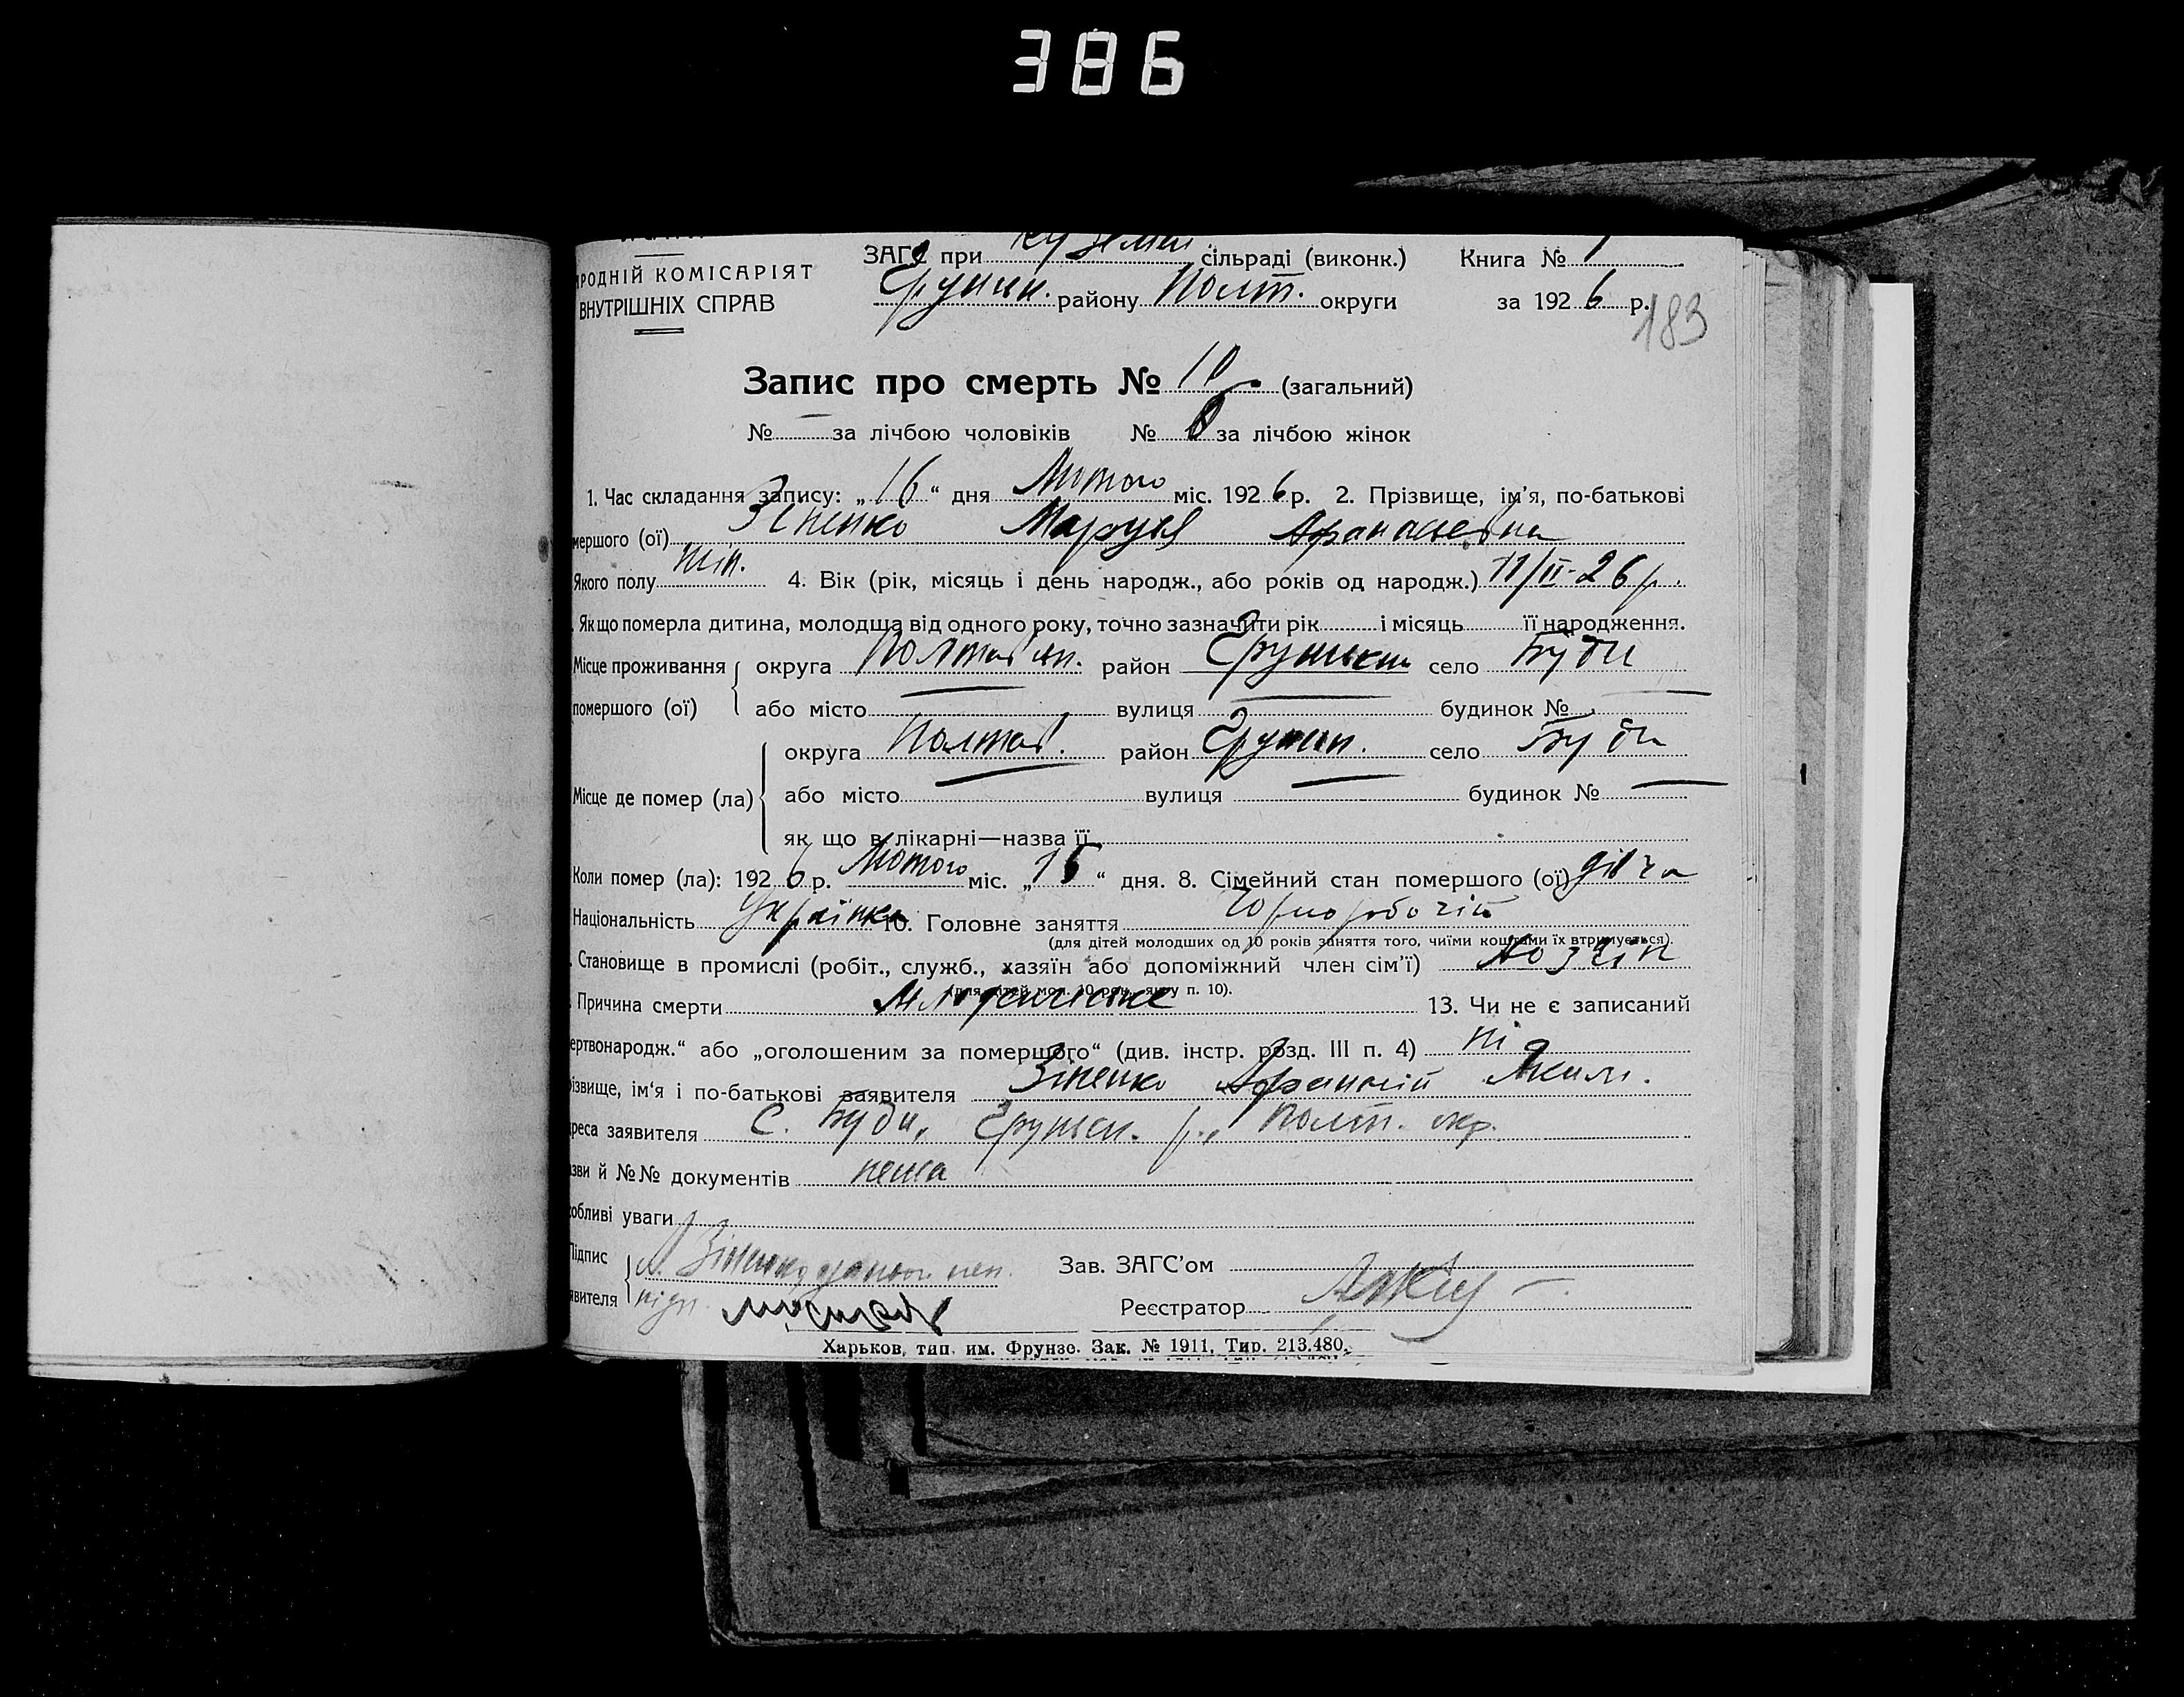 386
ЗАГС при Куземен. сільраді (виконк.) Книга № 1
НАРОДНІЙ КОМІСАРІЯТ
ВНУТРІШНІХ СПРАВ
Грунськ. району Полт. округи за 1926 р.
183
Запис про смерть № 10 (загальний)
№ — за лічбою чоловіків № 8 за лічбою жінок
1. Час складання запису: „16“ дня Лютого міс. 1926 р. 2. Прізвище, ім'я, по-батькові
мершого (ої) Зіненко Маруся Афанасьевна
Якого полу жін. 4. Вік (рік, місяць і день народж., або років од народж.) 11/II-26 р.
Якщо померла дитина, молодша від одного року, точно зазначити рік місяць її народження.
Місце проживання округа Полтавськ. район Грунськ село Буди
помершого (ої) або місто — вулиця — будинок № —
округа Полтав. район Грунськ. село Буди
Місце де помер (ла) або місто — вулиця — будинок № —
як що в лікарні—назва її
Коли помер (ла): 1926 р. Лютого міс. „15“ дня. 8. Сімейний стан помершого (ої) дівча
Національність Українка 10. Головне заняття Чорноробочій
(для дітей молодших од 10 років заняття того, чиїми коштами їх втримується).
Становище в промислі (робіт., служб., хазяїн або допоміжний член сім'ї) хозяін
(для дітей мол. 10 рок. як у п. 10).
Причина смерти Младенчіське 13. Чи не є записаний
ертвонародж.“ або „оголошеним за помершого“ (див. інстр. розд. III п. 4) ні
ізвище, ім'я і по-батькові заявителя Зіненко Афанасій Яким.
реса заявителя С. Буди, Грунськ. р., Полт. окр.
зви й №№ документів нема
собливі уваги
Підпис А. Зіненко Зав. ЗАГС'ом
явителя підп. Реєстратор
Харьков, тип. им. Фрунзе. Зак. № 1911, Тир. 213.480.